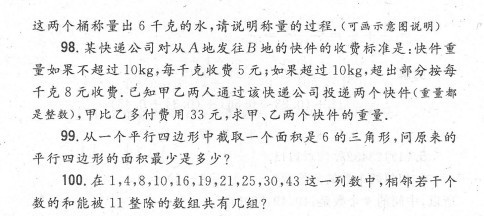 这两个桶称量出 6 千克的水,请说明称量的过程.(可画示意图说明)
98. 某快递公司对从 A 地发往 B 地的快件的收费标准是:快件重
量如果不超过 10kg,每千克收费 5 元;如果超过 10kg,超出部分按每
千克 8 元收费.已知甲乙两人通过该快递公司投递两个快件(重量都
是整数),甲比乙多付费用 33 元,求甲、乙两个快件的重量.
99. 从一个平行四边形中截取一个面积是 6 的三角形,问原来的
平行四边形的面积最少是多少?
100. 在 1,4,8,10,16,19,21,25,30,43 这一列数中,相邻若干个
数的和能被 11 整除的数组共有几组?